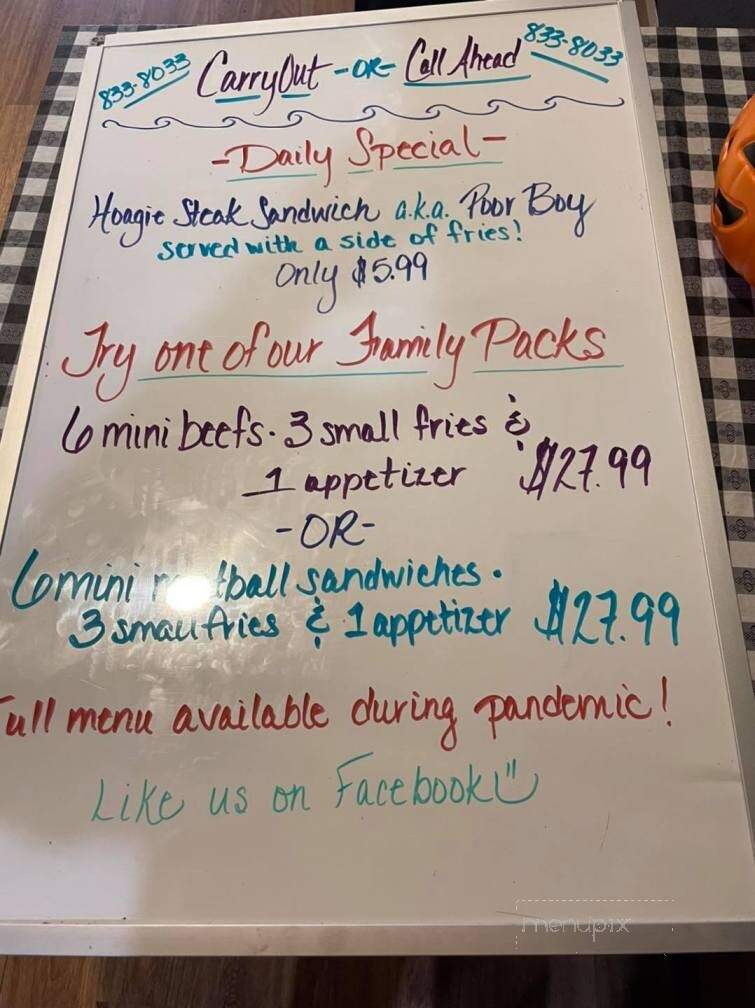 833-8033 CarryOut -OR- Call Ahead 833-8033
-Daily Special-
Hoagie Steak Sandwich a.k.a. Poor Boy
served with a side of fries!
Only $5.99
Try one of our Family Packs
6 mini beefs. 3 small fries &
1 appetizer $27.99
-OR-
6 mini tball sandwiches.
3 small fries & 1 appetizer $27.99
Full menu available during pandemic!
Like us on Facebook
menupix